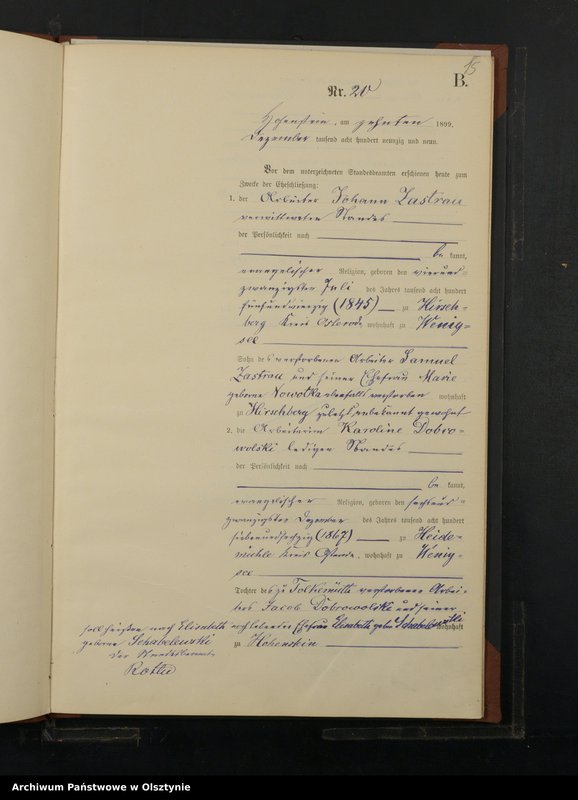 15
B.
Nr. 20
Hohenstein, am zehnten 1899.
Dezember tausend acht hundert neunzig und neun.
Vor dem unterzeichneten Standesbeamten erschienen heute zum
Zwecke der Eheschließung:
1. der Arbeiter Johann Zastrau
verwittweten Standes
der Persönlichkeit nach
be kannt,
evangelischer Religion, geboren den vierund=
zwanzigsten Juli des Jahres tausend acht hundert
fünfundvierzig (1845) zu Hirsch=
berg Kreis Osterode, wohnhaft zu Wenig=
see
Sohn des verstorbenen Arbeiter Samuel
Zastrau und seiner Ehefrau Marie
geborne Nowotka ebenfalls verstorben wohnhaft
zu Hirschberg zuletzt unbekannt gewohnt
2. die Arbeiterin Karoline Dobro=
wolski ledigen Standes
der Persönlichkeit nach
be kannt,
evangelischer Religion, geboren den sechsund=
zwanzigsten Dezember des Jahres tausend acht hundert
siebenundsechzig (1867) zu Heide=
mühle Kreis Osterode, wohnhaft zu Wenig=
see
Tochter des zu verstorbenen Arbei=
ters Jacob Dobrowolski und seiner
noch lebenden Ehefrau Elisabeth geborne wohnhaft
zu Hohenstein
soll heißen nach Elisabeth
geborne Schabelewski
Der Standesbeamte
Archiwum Państwowe w Olsztynie